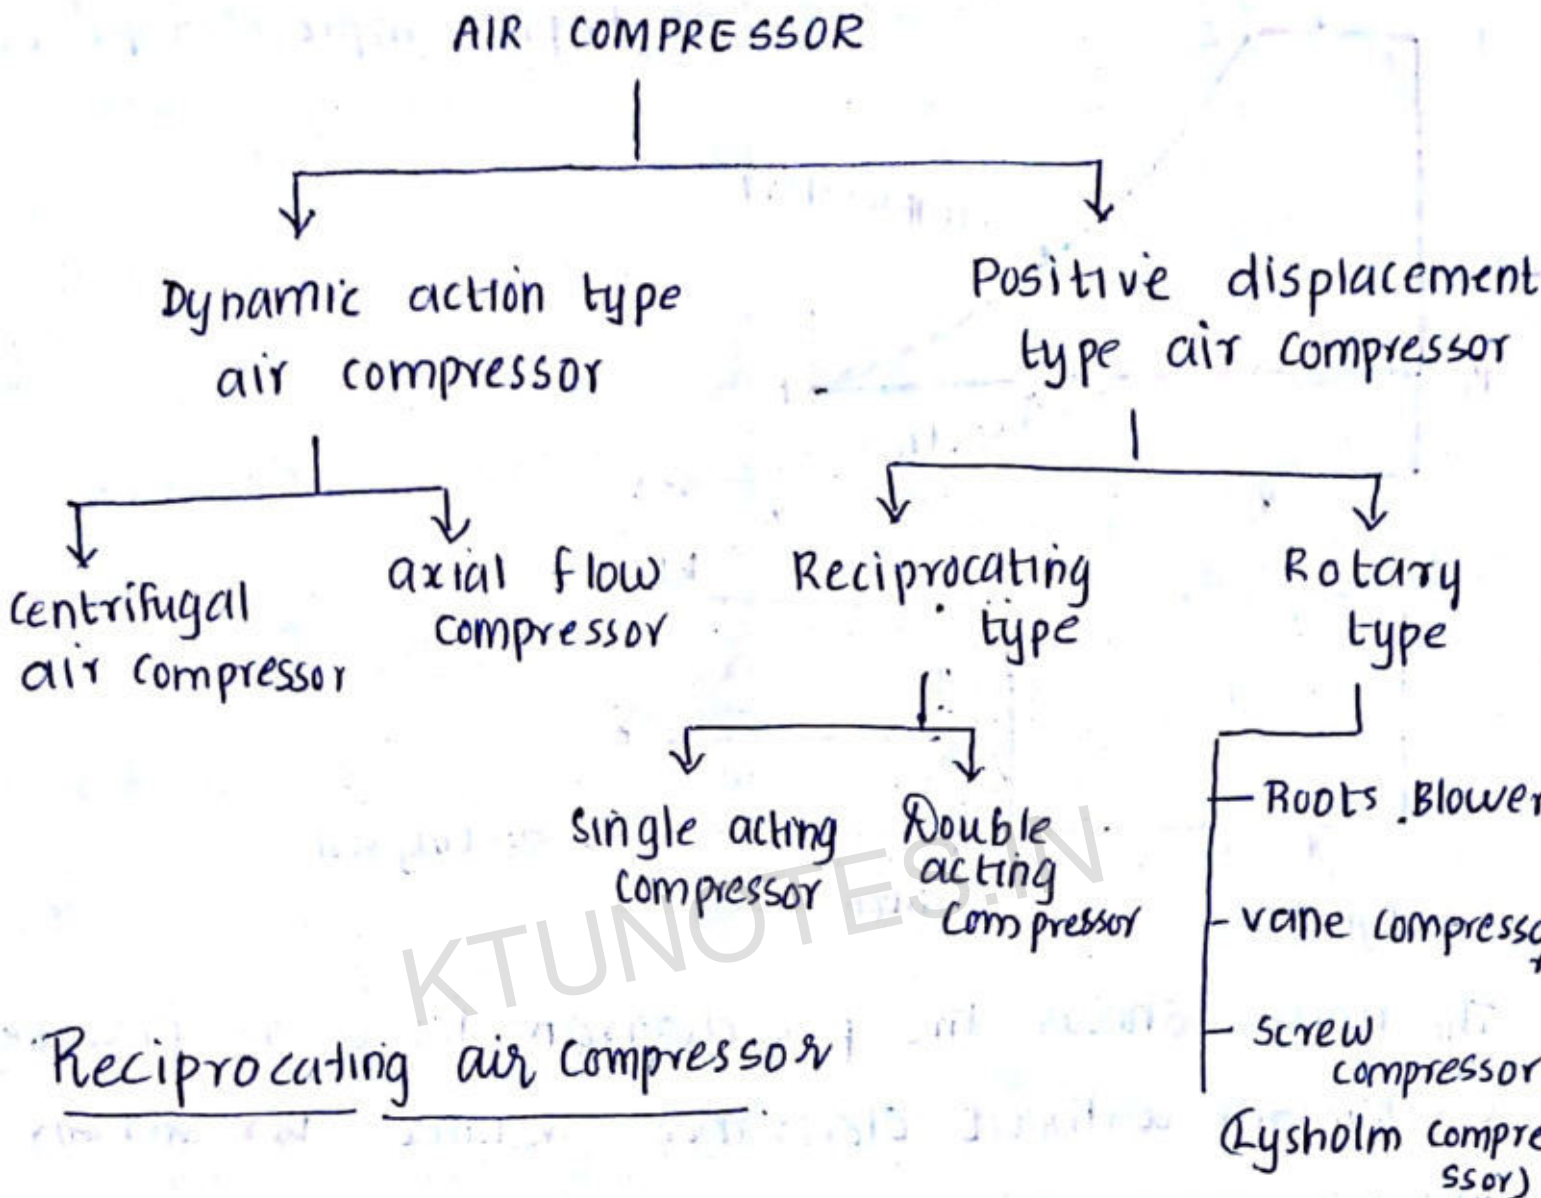 AIR COMPRESSOR
Dynamic action type
air compressor
Positive displacement
type air compressor
Centrifugal
air compressor
axial flow
compressor
Reciprocating
type
Rotary
type
Single acting
compressor
Double
acting
compressor
Roots Blower
vane compresso
r
screw
compressor
(Lysholm compre
ssor)
KTUNOTES.IN
Reciprocating air compressor